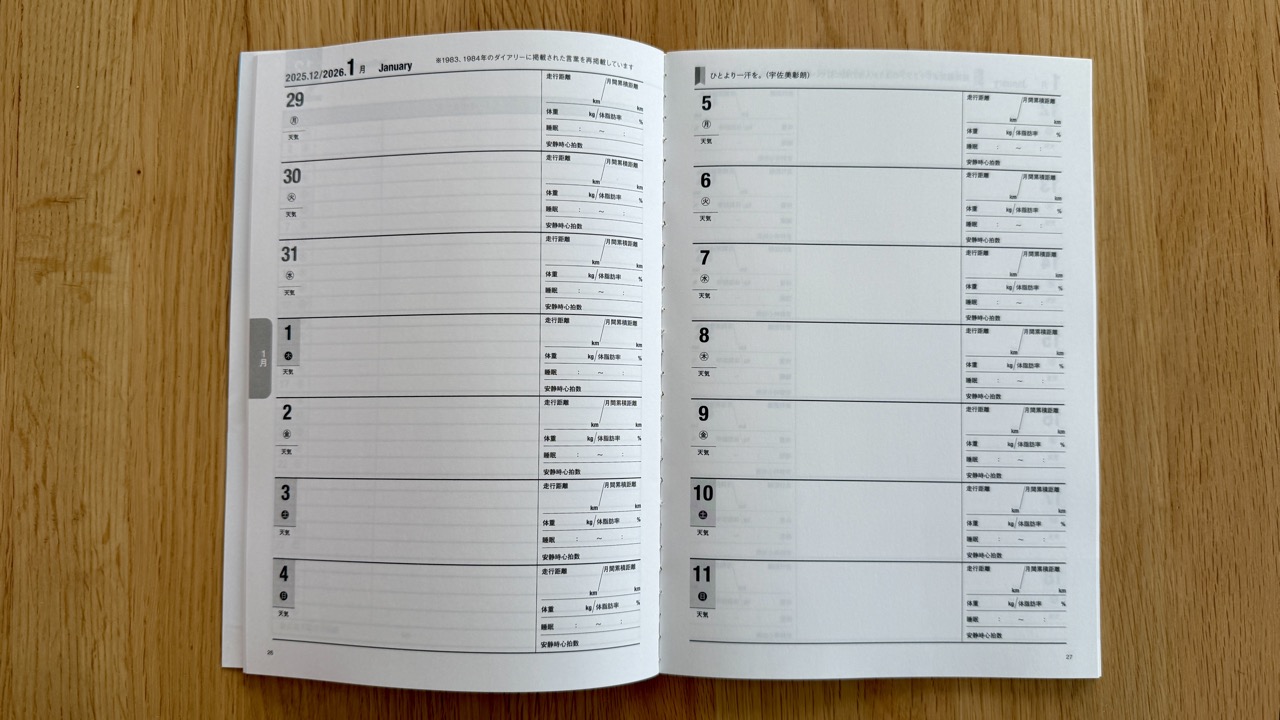 2025.12/2026.1月 January
※1983、1984年のダイアリーに掲載された言葉を再掲載しています
29
月
天気
走行距離 km/月間累積距離 km
体重 kg/体脂肪率 %
睡眠 : ~ :
安静時心拍数
30
火
天気
走行距離 km/月間累積距離 km
体重 kg/体脂肪率 %
睡眠 : ~ :
安静時心拍数
31
水
天気
走行距離 km/月間累積距離 km
体重 kg/体脂肪率 %
睡眠 : ~ :
安静時心拍数
1月
1
木
天気
走行距離 km/月間累積距離 km
体重 kg/体脂肪率 %
睡眠 : ~ :
安静時心拍数
2
金
天気
走行距離 km/月間累積距離 km
体重 kg/体脂肪率 %
睡眠 : ~ :
安静時心拍数
3
土
天気
走行距離 km/月間累積距離 km
体重 kg/体脂肪率 %
睡眠 : ~ :
安静時心拍数
4
日
天気
走行距離 km/月間累積距離 km
体重 kg/体脂肪率 %
睡眠 : ~ :
安静時心拍数
26
ひとより一汗を。(宇佐美彰朗)
5
月
天気
走行距離 km/月間累積距離 km
体重 kg/体脂肪率 %
睡眠 : ~ :
安静時心拍数
6
火
天気
走行距離 km/月間累積距離 km
体重 kg/体脂肪率 %
睡眠 : ~ :
安静時心拍数
7
水
天気
走行距離 km/月間累積距離 km
体重 kg/体脂肪率 %
睡眠 : ~ :
安静時心拍数
8
木
天気
走行距離 km/月間累積距離 km
体重 kg/体脂肪率 %
睡眠 : ~ :
安静時心拍数
9
金
天気
走行距離 km/月間累積距離 km
体重 kg/体脂肪率 %
睡眠 : ~ :
安静時心拍数
10
土
天気
走行距離 km/月間累積距離 km
体重 kg/体脂肪率 %
睡眠 : ~ :
安静時心拍数
11
日
天気
走行距離 km/月間累積距離 km
体重 kg/体脂肪率 %
睡眠 : ~ :
安静時心拍数
27